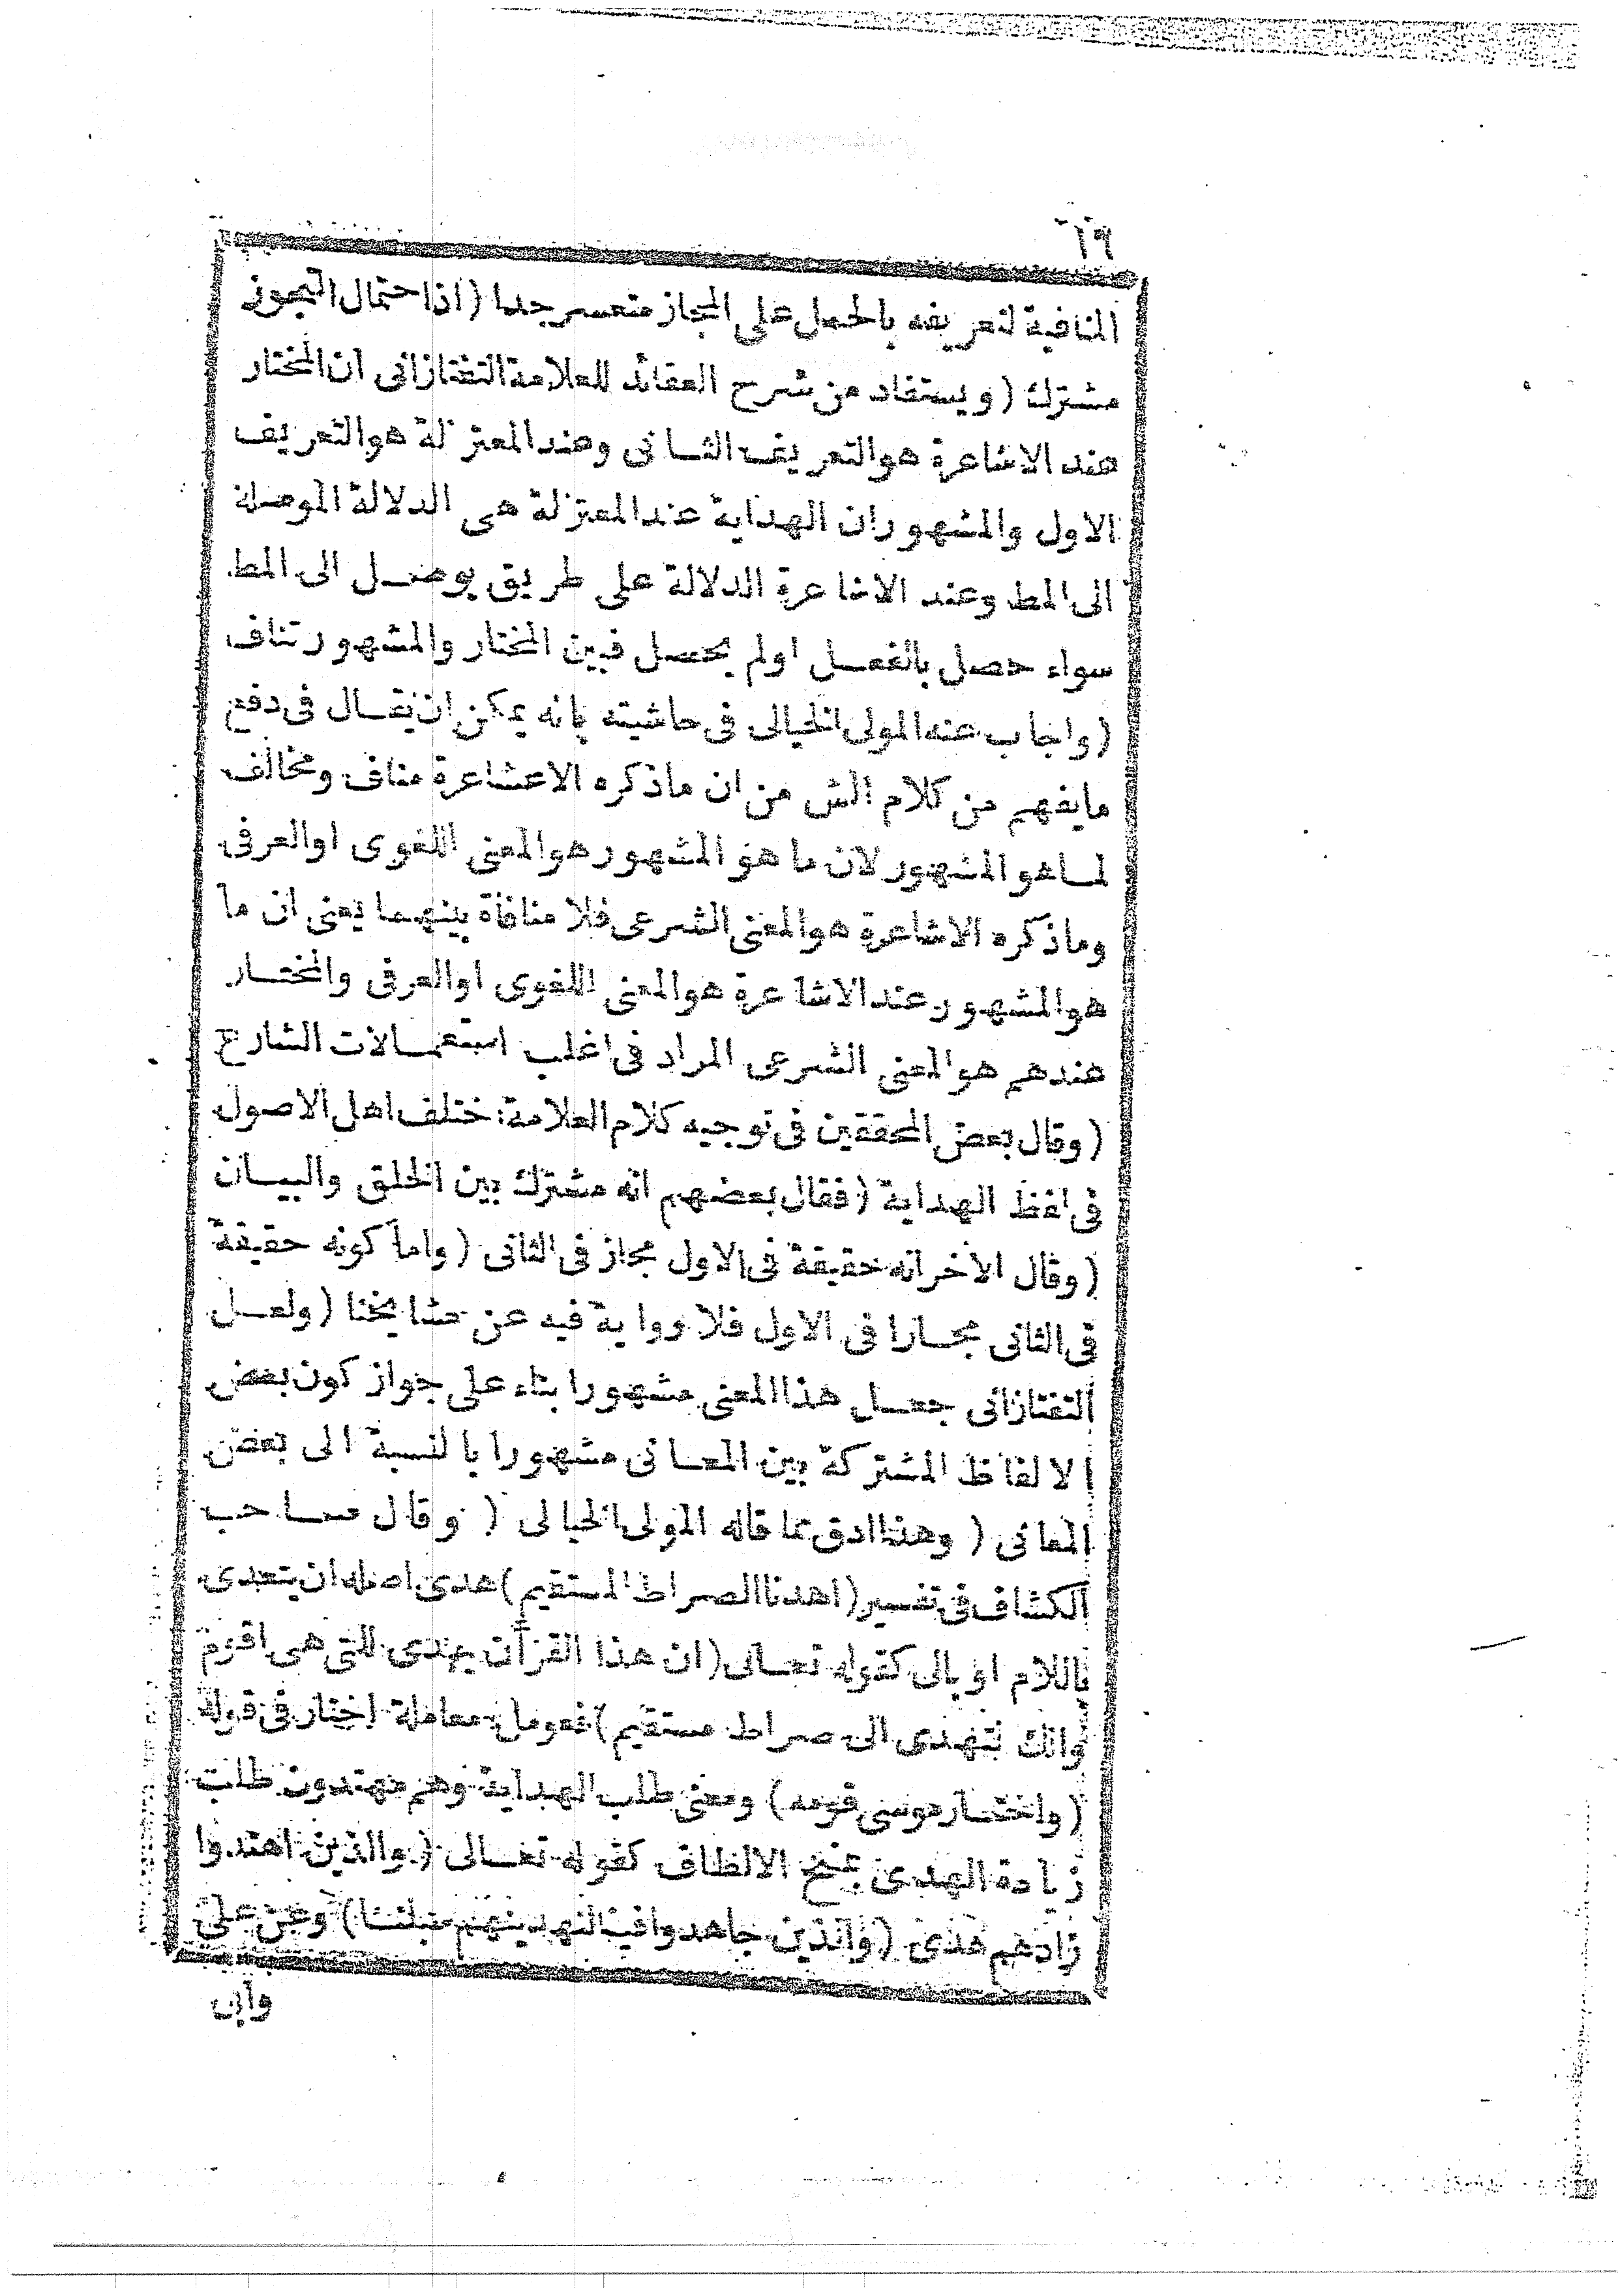 ٦٩
المنافية لتعريفه بالحمل على المجاز متعسر جدا (اذا حتمال التجوز
مشترك (ويستفاد من شرح العقائد للعلامة التفتازانى ان المختار
عند الاشاعرة هو التعريف الثانى وعند المعتزلة هو التعريف
الاول والمشهور ان الهداية عند المعتزلة هى الدلالة الموصلة
الى المط وعند الاشاعرة الدلالة على طريق يوصل الى المط
سواء حصل بالفعل اولم يحصل فبين المختار والمشهور تناف
(واجاب عنه المولى الخيالى فى حاشيته بانه يمكن ان يقال فى دفع
مايفهم من كلام الش من ان ماذكره الاعشاعرة مناف ومخالف
لماهو المشهور لان ما هو المشهور هو المعنى اللغوى او العرفى
وماذكره الاشاعرة هو المعنى الشرعى فلا منافاة بينهما يعنى ان ما
هو المشهور عند الاشاعرة هو المعنى اللغوى او العرفى والمختار
عندهم هو المعنى الشرعى المراد فى اغلب استعمالات الشارع
(وقال بعض المحققين فى توجيه كلام العلامة اختلف اهل الاصول
فى لفظ الهداية (فقال بعضهم انه مشترك بين الخلق والبيان
(وقال الآخر انه حقيقة فى الاول مجاز فى الثانى (واما كونه حقيقة
فى الثانى مجازا فى الاول فلا رواية فيه عن مشايخنا (ولعل
التفتازانى جعل هذا المعنى مشهورا بناء على جواز كون بعض
الالفاظ المشتركة بين المعانى مشهورا بالنسبة الى بعض
المعانى (وهذا ادق مما قاله المولى الخيالى (وقال صاحب
الكشاف فى تفسير (اهدنا الصراط المستقيم) هدى اصله ان يتعدى
باللام او بالى كقوله تعالى (ان هذا القرآن يهدى للتى هى اقوم
وانك لتهدى الى صراط مستقيم) فعومل معاملة اختار فى قوله
(واختار موسى قومه) ومعنى طلب الهداية وهم مهتدون طلب
زيادة الهدى بمنح الالطاف كقوله تعالى (والذين اهتدوا
زادهم هدى (والذين جاهدوا فينا لنهدينهم سبلنا) وعن على
وابى